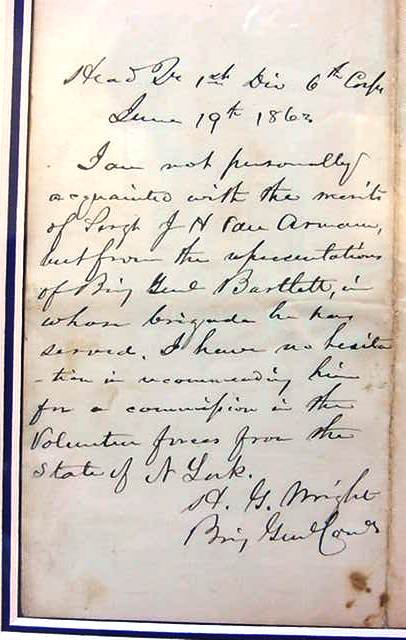 Head Qr 1st Div 6th Corps
June 19th 1863
I am not personally
acquainted with the merits
of Sergt J H Van
but from the representations
of Brig Genl Bartlett, in
whose brigade he has
served, I have no hesita
-tion in recommending him
for a commission in the
Volunteer forces from the
State of N York.
H. G. Wright
Brig Genl Comdg